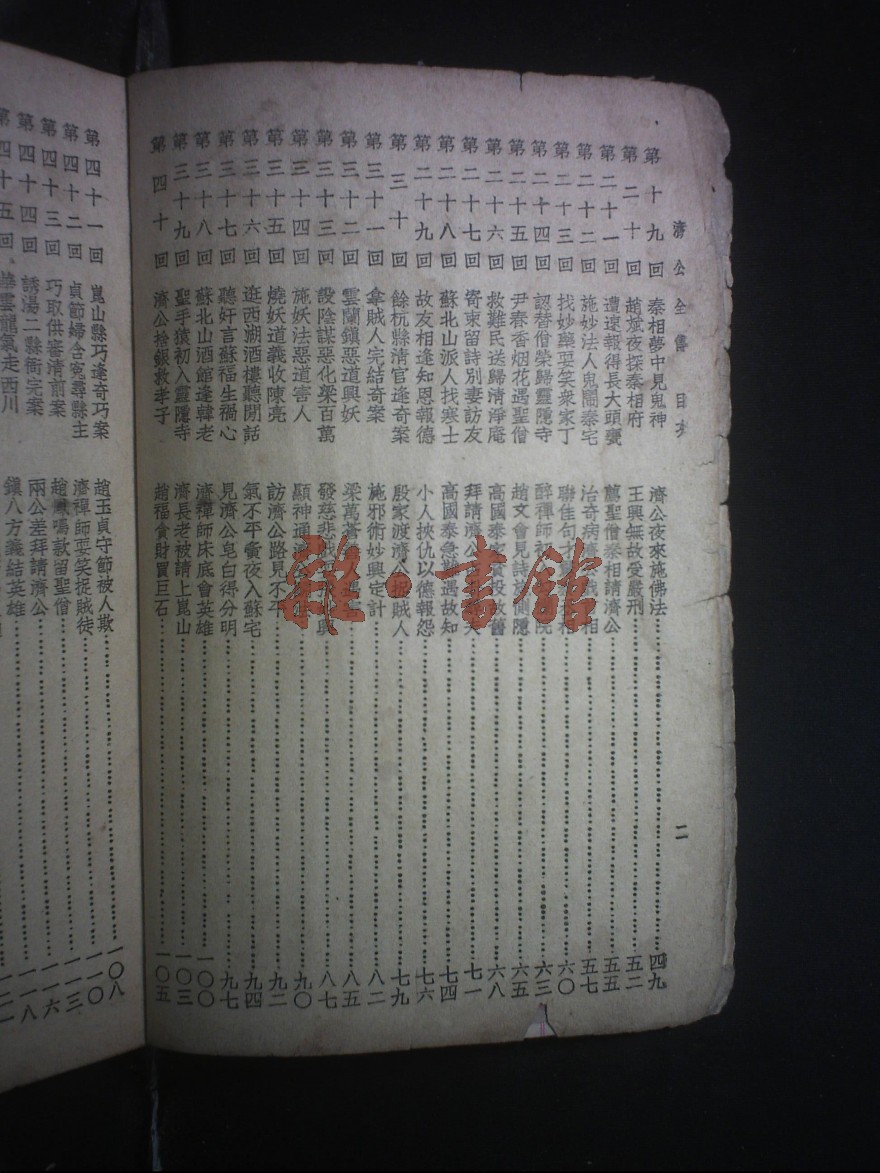 濟公全傳 目次 二
第十九回 秦相夢中見鬼神 濟公夜來施佛法……四九
第二十回 趙斌夜探秦相府 王興無故受嚴刑……五二
第二十一回 遭速報得長大頭甕 薦聖僧秦相請濟公……五五
第二十二回 施妙法人鬼鬧秦宅 治奇病濟公戲相……五七
第二十三回 找妙藥耍笑衆家丁 聯佳句才相……六〇
第二十四回 認替僧榮歸靈隱寺 醉禪師院……六三
第二十五回 尹春香烟花遇聖僧 趙文會見詩施惻隱……六五
第二十六回 救難民送歸清淨庵 高國泰投故舊……六八
第二十七回 寄柬留詩別妻訪友 拜請濟公……七一
第二十八回 蘇北山派人找寒士 高國泰急難遇故知……七四
第二十九回 故友相逢知恩報德 小人挾仇以德報怨……七六
第三十回 餘杭縣清官逢奇案 殷家渡濟公捉賊人……七九
第三十一回 拿賊人完結奇案 施邪術妙興定計……八二
第三十二回 雲蘭鎮惡道興妖 梁萬蒼……八五
第三十三回 設陰謀惡化梁百萬 發慈悲興……八七
第三十四回 施妖法惡道害人 顯神通……九〇
第三十五回 燒妖道義收陳亮 訪濟公路見不平……九二
第三十六回 逛西湖酒樓聽閒話 氣不平夤夜入蘇宅……九四
第三十七回 聽奸言蘇福生禍心 見濟公皂白得分明……九七
第三十八回 蘇北山酒館逢韓老 濟禪師床底會英雄……一〇〇
第三十九回 聖手猿初入靈隱寺 濟長老被請上崑山……一〇三
第四十回 濟公捨銀救孝子 趙福貪財買巨石……一〇五
第四十一回 崑山縣巧逢奇巧案 趙玉貞守節被人欺……一〇八
第四十二回 貞節婦含冤尋縣主 濟禪師耍笑捉賊徒……一一〇
第四十三回 巧取供審清前案 趙鳴歌留聖僧……一一三
第四十四回 誘湯二縣衙完案 兩公差拜請濟公……一一六
第四十五回 華雲龍氣走西川 鎮八方義結英雄……一一八
雜·書館